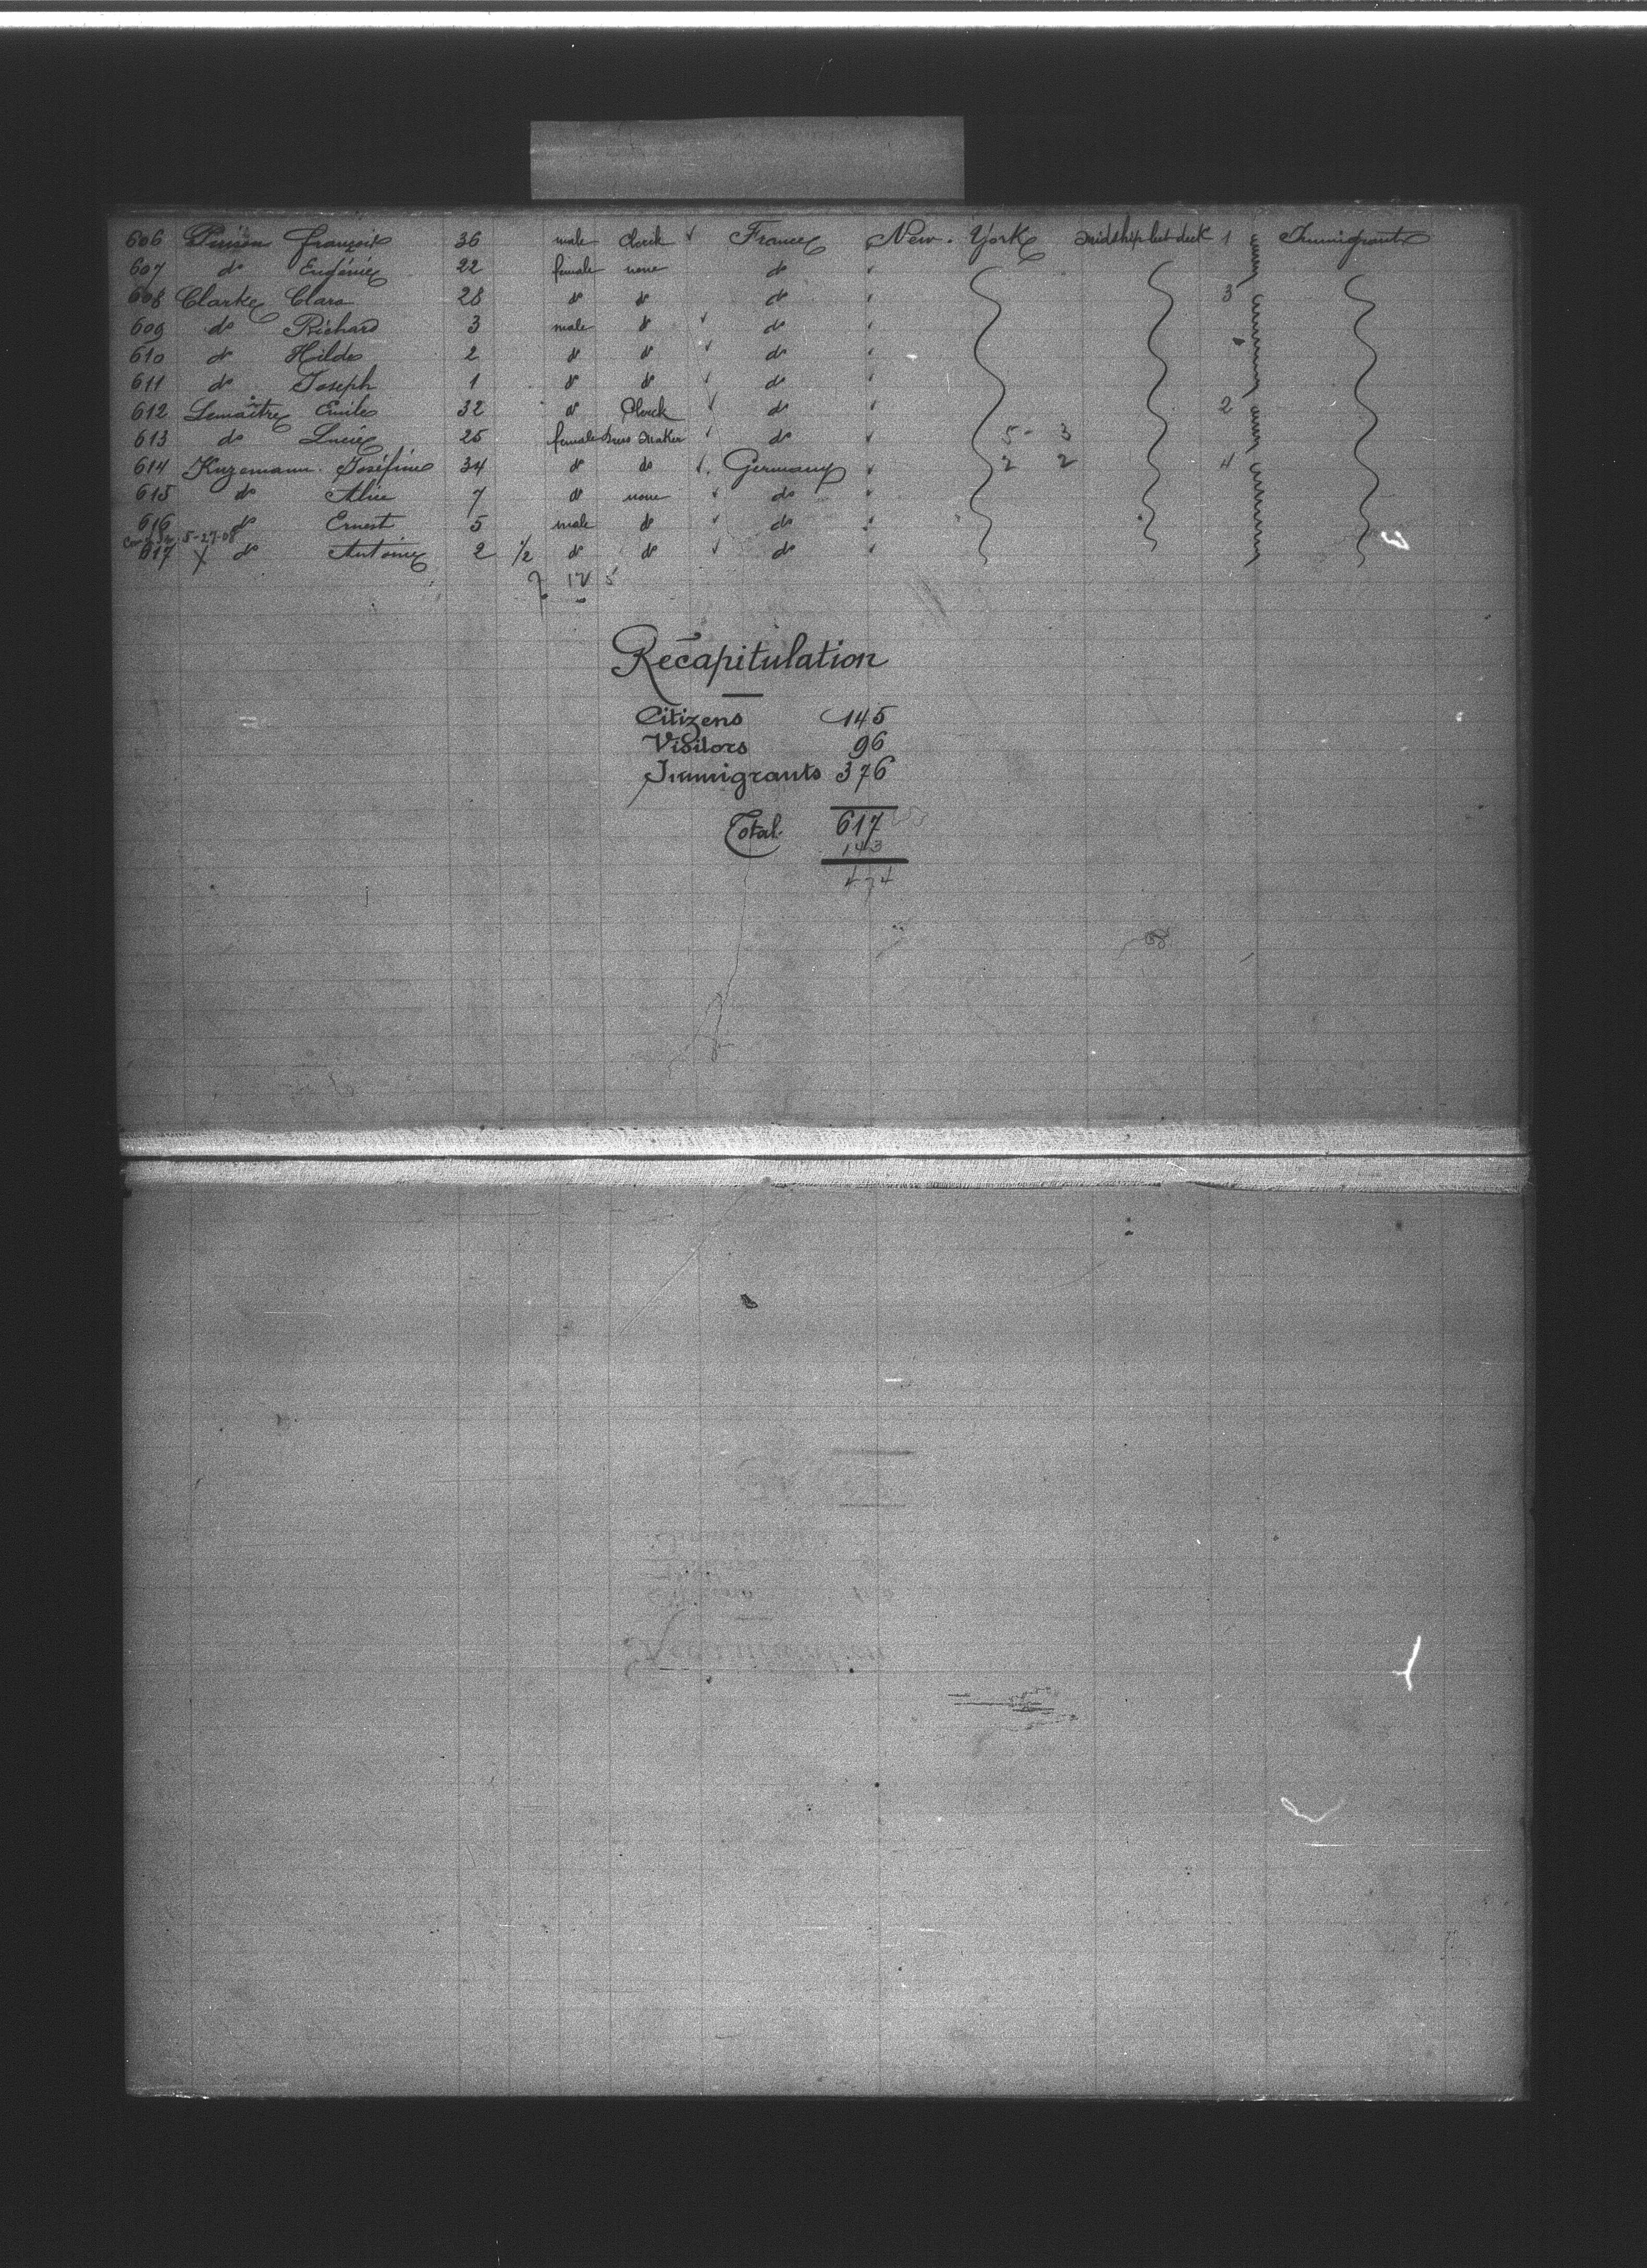 606 François 36 male Clerk ✓ France New-York midship 1 Immigrants
607 do Eugénie 22 female none do
608 Clarke Clara 28 do do do 3
609 do Richard 3 male do ✓ do
610 do Hilda 2 do do ✓ do
611 do Joseph 1 do do ✓ do
612 Lemaître Emile 32 do Clerck ✓ do 2
613 do Lucie 25 female Dress Maker ✓ do 5 - 3
614 Kuzemann Joséfine 34 do do ✓ Germany 2 2 4
615 do Alice 7 do none ✓ do
616 do Ernest 5 male do ✓ do
5-27-08
617 X do Antoine 2 1/2 do do ✓ do
7 12 5
Recapitulation
Citizens 145
Visitors 96
Immigrants 376
Total 617
143
474